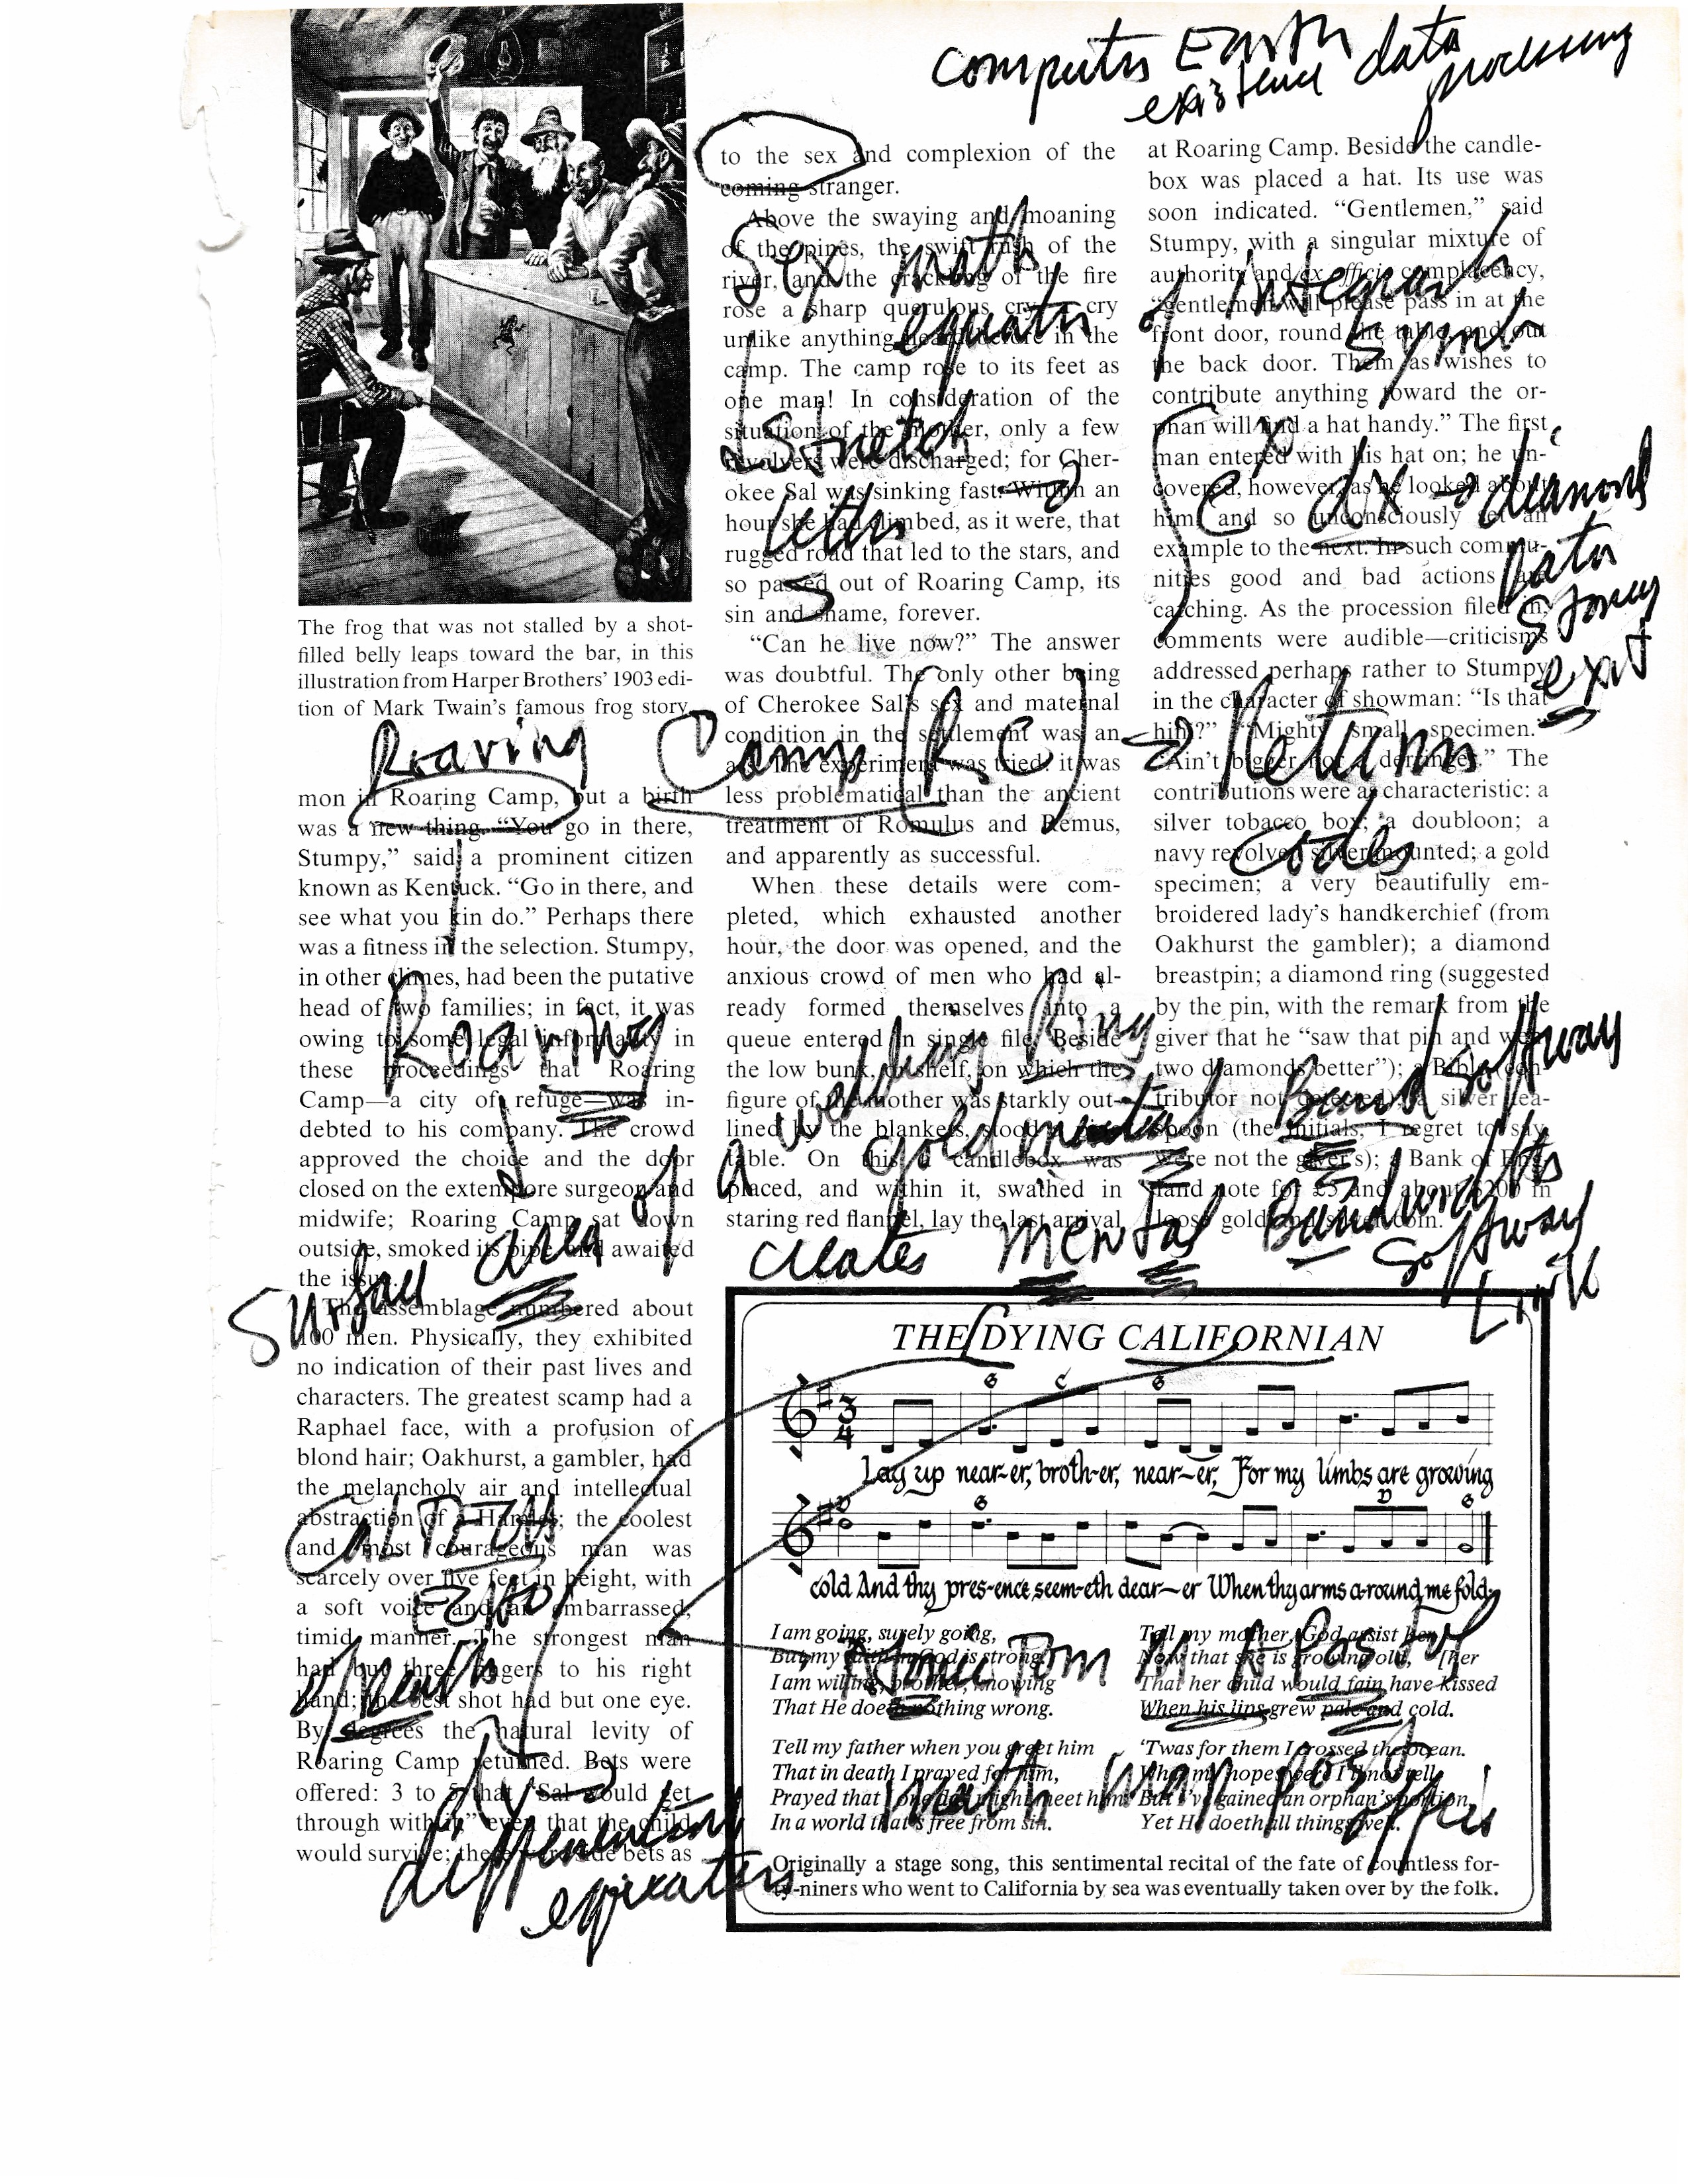 computer Earth data
existence processing
The frog that was not stalled by a shot-
filled belly leaps toward the bar, in this
illustration from Harper Brothers' 1903 edi-
tion of Mark Twain's famous frog story.
Roaring Camp (RC) → Returns
codes
mon in Roaring Camp, but a birth
was a new thing. “You go in there,
Stumpy,” said a prominent citizen
known as Kentuck. “Go in there, and
see what you kin do.” Perhaps there
was a fitness in the selection. Stumpy,
in other climes, had been the putative
head of two families; in fact, it was
owing to some legal informality in
these proceedings that Roaring
Camp—a city of refuge—was in-
debted to his company. The crowd
approved the choice and the door
closed on the extempore surgeon and
midwife; Roaring Camp sat down
outside, smoked its pipe and awaited
the issue.
The assemblage numbered about
100 men. Physically, they exhibited
no indication of their past lives and
characters. The greatest scamp had a
Raphael face, with a profusion of
blond hair; Oakhurst, a gambler, had
the melancholy air and intellectual
abstraction of a Hamlet; the coolest
and most courageous man was
scarcely over five feet in height, with
a soft voice and an embarrassed,
timid manner. The strongest man
had but three fingers to his right
hand; the best shot had but one eye.
By degrees the natural levity of
Roaring Camp returned. Bets were
offered: 3 to 5 that “Sal would get
through with it;” even that the child
would survive; there were side bets as
Roaring
surface area of
a wedding Ring
gold mental Band softway
creates mental Bandwidths
softway
Link
to the sex and complexion of the
coming stranger.
Above the swaying and moaning
of the pines, the swift rush of the
river, and the crackling of the fire
rose a sharp querulous cry—a cry
unlike anything heard before in the
camp. The camp rose to its feet as
one man! In consideration of the
situation of the mother, only a few
revolvers were discharged; for Cher-
okee Sal was sinking fast. Within an
hour she had climbed, as it were, that
rugged road that led to the stars, and
so passed out of Roaring Camp, its
sin and shame, forever.
“Can he live now?” The answer
was doubtful. The only other being
of Cherokee Sal's sex and maternal
condition in the settlement was an
ass. The experiment was tried. it was
less problematical than the ancient
treatment of Romulus and Remus,
and apparently as successful.
When these details were com-
pleted, which exhausted another
hour, the door was opened, and the
anxious crowd of men who had al-
ready formed themselves into a
queue entered in single file. Beside
the low bunk, or shelf, on which the
figure of the mother was starkly out-
lined by the blankets, stood a
table. On this a candlebox was
placed, and within it, swathed in
staring red flannel, lay the last arrival
Sex math
of integrals
symb
Stretch
letters
S
e dx → diamond
data
exit
at Roaring Camp. Beside the candle-
box was placed a hat. Its use was
soon indicated. “Gentlemen,” said
Stumpy, with a singular mixture of
authority and ex officio complacency,
“gentlemen will please pass in at the
front door, round the table, and out
the back door. Them as wishes to
contribute anything toward the or-
phan will find a hat handy.” The first
man entered with his hat on; he un-
covered, however, as he looked about
him, and so unconsciously set an
example to the next. In such commu-
nities good and bad actions are
catching. As the procession filed in,
comments were audible—criticisms
addressed perhaps rather to Stumpy
in the character of showman: “Is that
him?” “Mighty small specimen.”
“Ain't bigger nor a derringer.” The
contributions were as characteristic: a
silver tobacco box; a doubloon; a
navy revolver, silver mounted; a gold
specimen; a very beautifully em-
broidered lady's handkerchief (from
Oakhurst the gambler); a diamond
breastpin; a diamond ring (suggested
by the pin, with the remark from the
giver that he “saw that pin and went
two diamonds better”); a Bible (con-
tributor not detected); a silver tea-
spoon (the initials, I regret to say,
were not the giver's); a Bank of Eng-
land note for £5 and about $200 in
loose gold and silver coin.
THE DYING CALIFORNIAN
G C G
3
4
Lay up near-er, broth-er, near-er, For my limbs are growing
D G D G
cold And thy pres-ence seem-eth dear-er When thy arms a-round me fold;
I am going, surely going,
But my faith in God is strong.
I am willing, brother, knowing
That He doeth nothing wrong.
Tell my father when you greet him
That in death I prayed for him,
Prayed that I one day might meet him
In a world that's free from sin.
Tell my mother, God assist her
Now that she is growing old, [her
That her child would fain have kissed
When his lips grew pale and cold.
'Twas for them I crossed the ocean.
What my hopes were I'll not tell;
But I've gained an orphan's portion,
Yet He doeth all things well.
Originally a stage song, this sentimental recital of the fate of countless for-
ty-niners who went to California by sea was eventually taken over by the folk.
CALTECH
math man post
dy →
differential